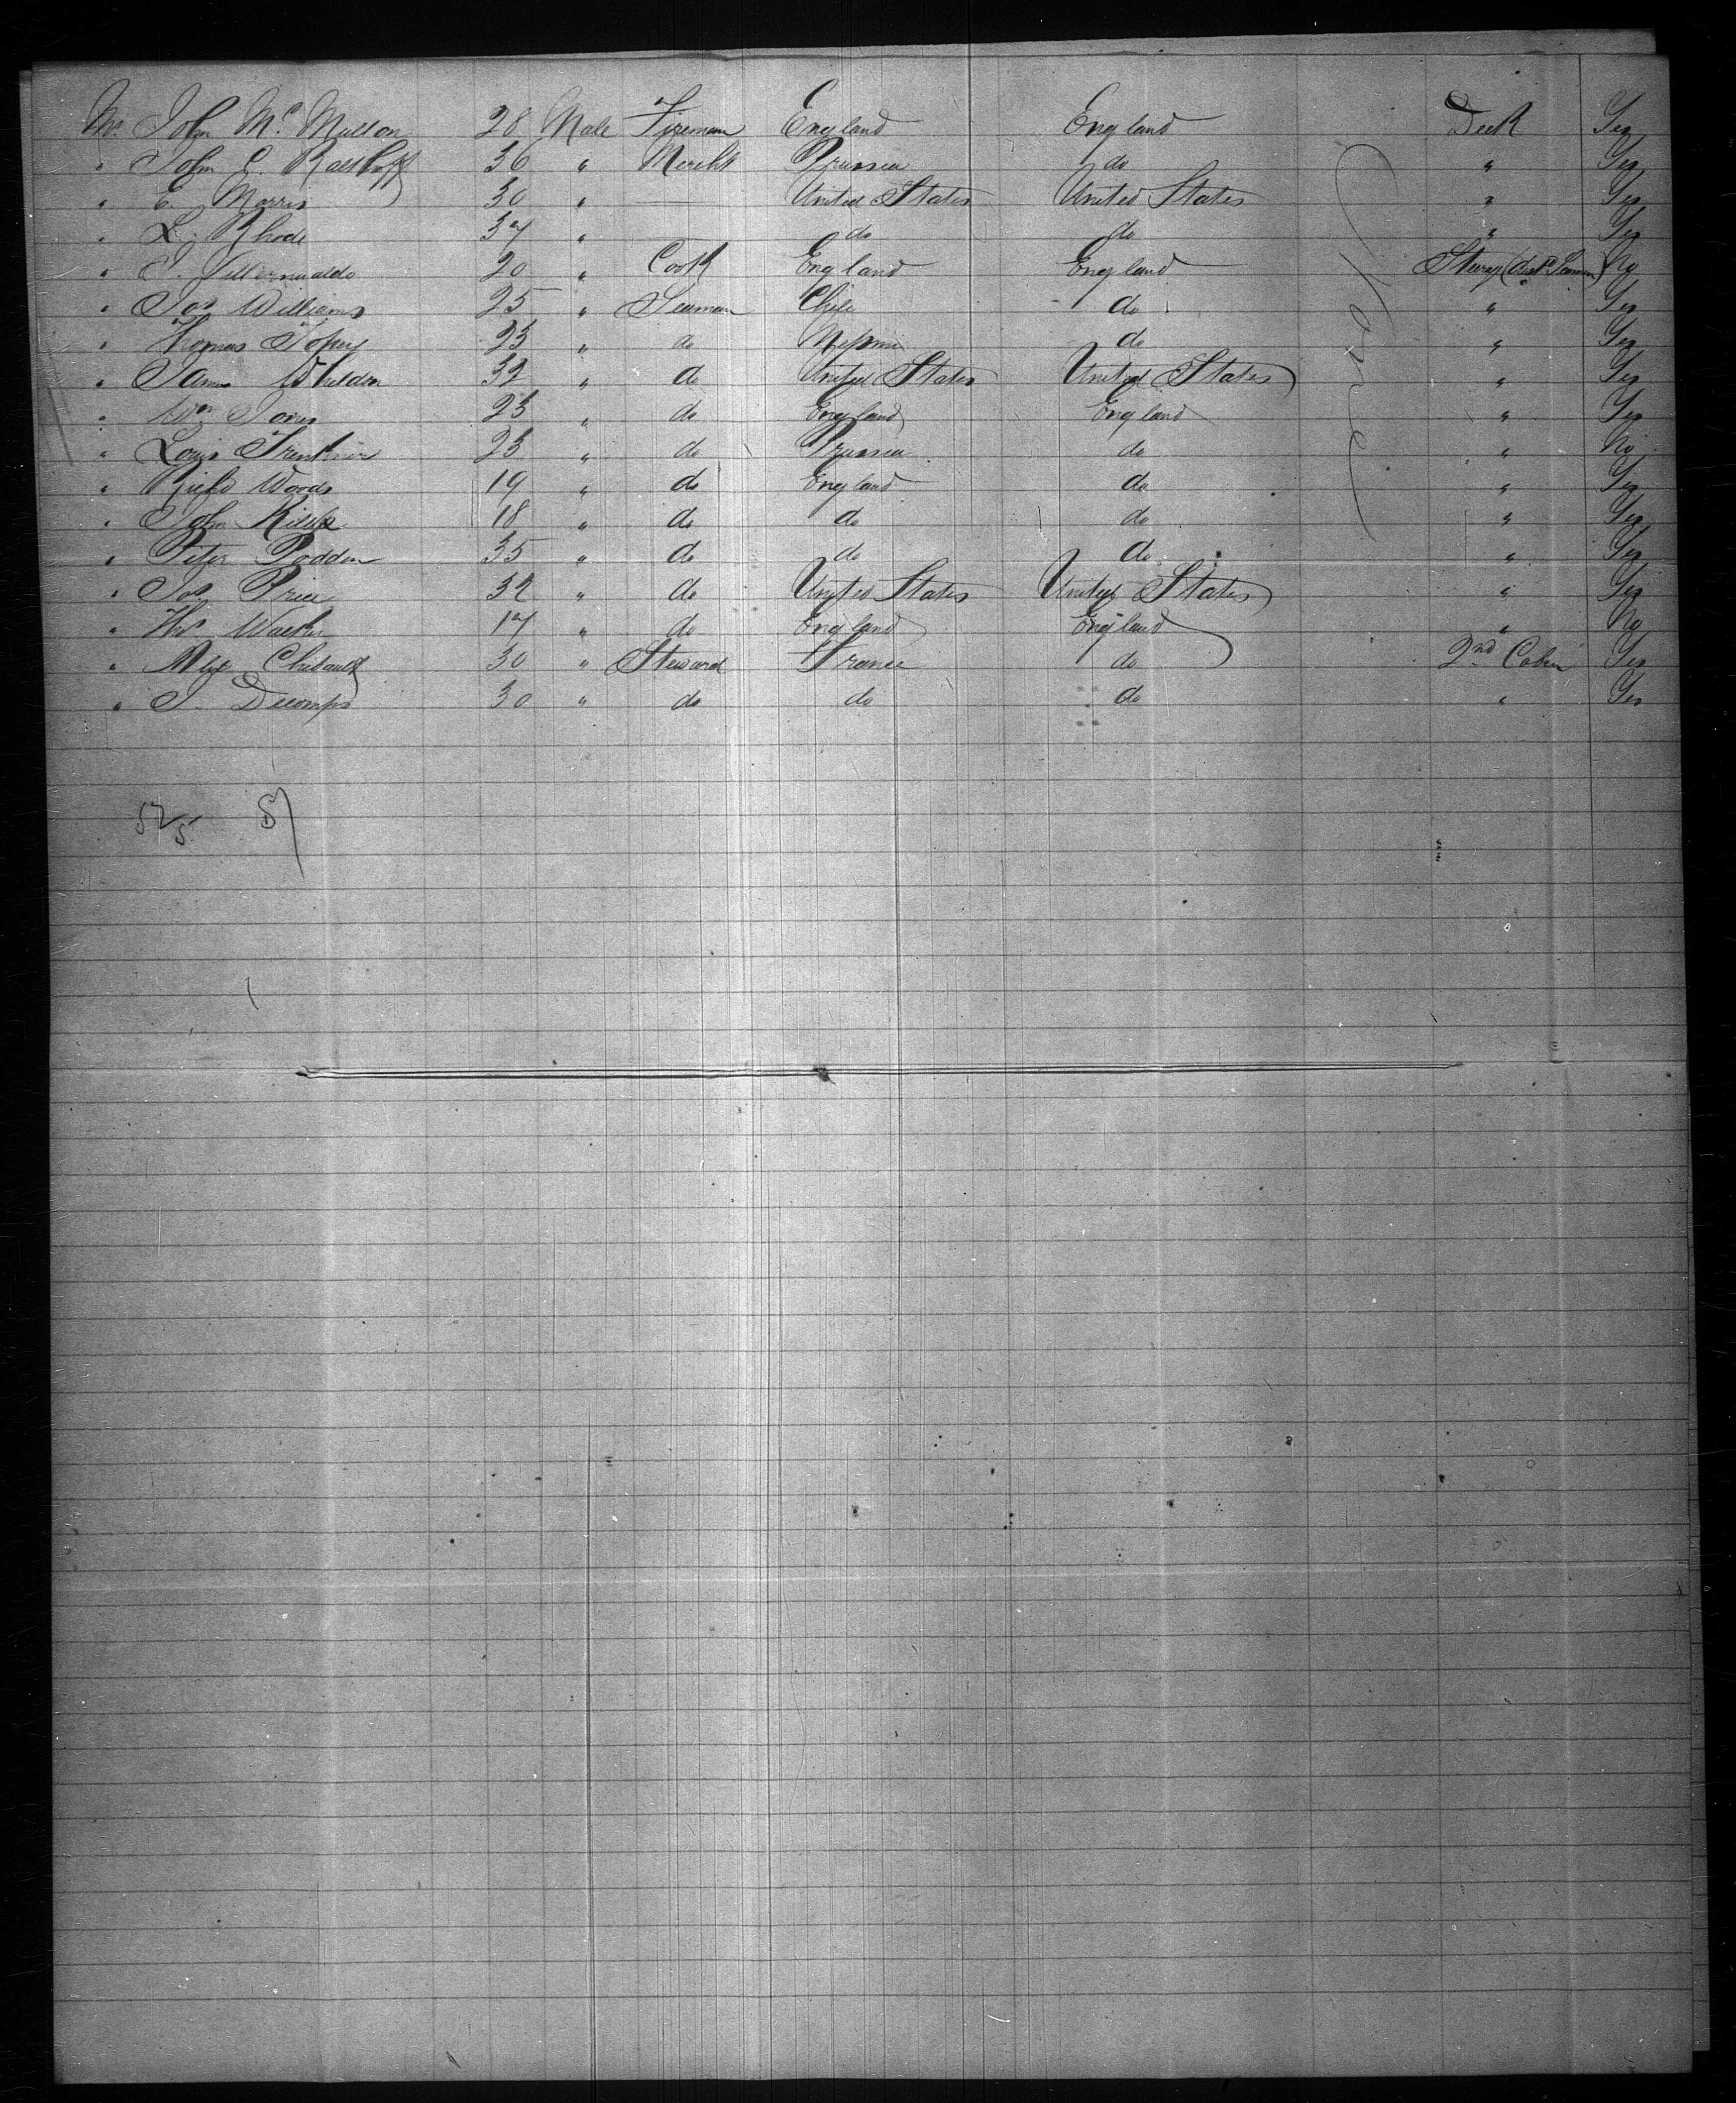 Mr John Mc Mullon 28 Male Fireman England England Deck Yes
" John C. 36 " Mercht Prussia do " Yes
" E. Morris 30 " — United States United States " Yes
" L. Rhode 37 " do do " Yes
" J. 20 " Cook England England Steerage (Dist. Seamen) No
" Jos Williams 25 " Seaman Chile do " Yes
" Thomas 23 " do do " Yes
" James Whilden 32 " do United States United States " Yes
" Wm Jones 23 " do England England " Yes
" Louis 23 " do Prussia do " No
" Richd Woods 19 " do England do " Yes
" John 18 " do do do " Yes
" Peter Podden 35 " do do do " Yes
" Jos Price 32 " do United States United States " Yes
" Thos Walker 17 " do England England " No
" Alex Chibault 30 " Steward France do 2nd Cabin Yes
" J. Decomps 30 " do do do " Yes
None